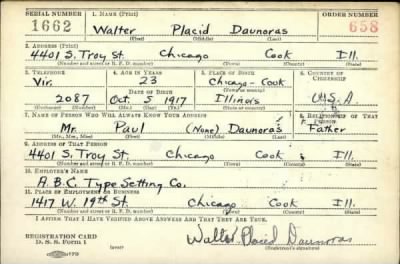 SERIAL NUMBER 1. NAME (Print) ORDER NUMBER
1662 Walter Placid Daunoras 658
(First) (Middle) (Last)
2. ADDRESS (Print)
4401 S. Troy St. Chicago Cook Ill.
(Number and street or R. F. D. number) (Town) (County) (State)
3. TELEPHONE 4. AGE IN YEARS 5. PLACE OF BIRTH 6. COUNTRY OF CITIZENSHIP
Vir. 23 Chicago - Cook
(Town) (County)
DATE OF BIRTH
2087 Oct 5 1917 Illinois U.S.A
(Exchange) (Number) (Mo.) (Day) (Yr.) (State or country)
7. NAME OF PERSON WHO WILL ALWAYS KNOW YOUR ADDRESS 8. RELATIONSHIP OF THAT PERSON
Mr. Paul (None) Daunoras Father
(Mr., Mrs., Miss) (First) (Middle) (Last)
9. ADDRESS OF THAT PERSON
4401 S. Troy St. Chicago Cook Ill.
(Number and street or R. F. D. number) (Town) (County) (State)
10. EMPLOYER'S NAME
A.B.C. Type Setting Co.
11. PLACE OF EMPLOYMENT OR BUSINESS
1417 W. 19th St. Chicago Cook Ill.
(Number and street or R. F. D. number) (Town) (County) (State)
I AFFIRM THAT I HAVE VERIFIED ABOVE ANSWERS AND THAT THEY ARE TRUE.
REGISTRATION CARD
D. S. S. Form 1 (over) Walter Placid Daunoras
(Registrant's signature)